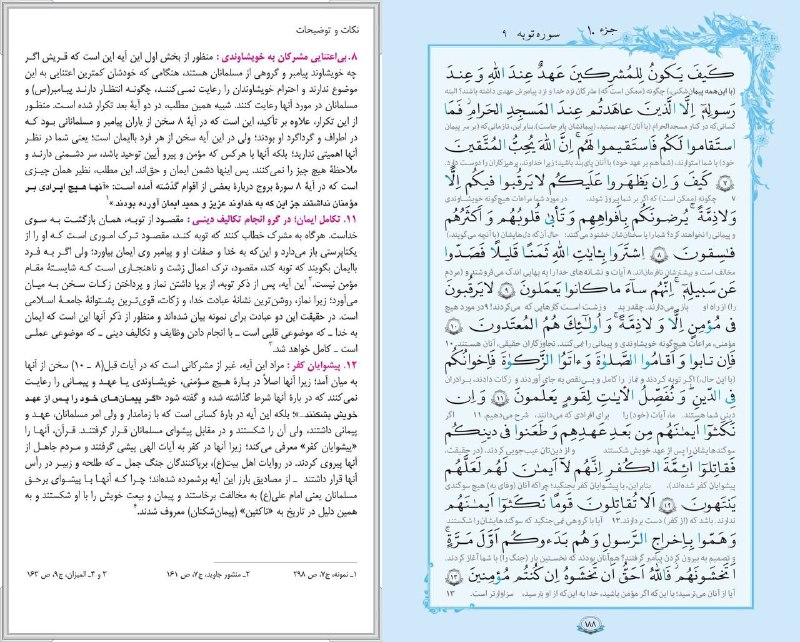 جزء ۱۰
سوره توبه ۹
كَيْفَ يَكُونُ لِلْمُشْرِكِينَ عَهْدٌ عِندَ اللّٰهِ وَعِندَ
(با این همه پیمان‌شکنی) چگونه (ممکن است که) مشرکان نزد خدا و نزد پیامبرش عهدی داشته باشند؟! البته
رَسُولِهِ إِلَّا الَّذِينَ عَاهَدتُم عِندَ الْمَسْجِدِ الْحَرَامِ فَمَا
کسانی که در کنار مسجدالحرام (با آنان) عهد بستید، (پیمانشان پابرجاست). بنابراین، تا زمانی که (بر سر پیمان
اسْتَقَامُوا لَكُمْ فَاسْتَقِيمُوا لَهُمْ إِنَّ اللّٰهَ يُحِبُّ الْمُتَّقِينَ
خود) با شما استوارند، (شما هم بر عهد خود) با آنان پای‌بند باشید؛ زیرا خداوند، پرهیزکاران را دوست دارد.
۷ كَيْفَ وَ إِن يَظْهَرُوا عَلَيْكُمْ لَا يَرْقُبُوا فِيكُمْ إِلًّا
۷ چگونه (ممکن است) که اگر بر شما پیروز شوند، در مورد شما مراعات هیچ‌گونه خویشاوندی
وَلَا ذِمَّةً يُرْضُونَكُم بِأَفْوَاهِهِمْ وَ تَأْبَىٰ قُلُوبُهُمْ وَ أَكْثَرُهُمْ
و پیمانی را نخواهند کرد؟ شما را با سخنانشان خشنود می‌کنند؛ حال آن که دل‌هایشان (با آنچه می‌گویند)
فَاسِقُونَ ۸ اشْتَرَوْا بِـَٔايَاتِ اللّٰهِ ثَمَنًا قَلِيلًا فَصَدُّوا
مخالف است و بیشترشان نافرمان‌اند. ۸ آیات و نشانه‌های خدا را به بهایی اندک می‌فروشند و (مردم
عَن سَبِيلِهِ إِنَّهُمْ سَآءَ مَا كَانُوا يَعْمَلُونَ ۹ لَا يَرْقُبُونَ
را) از راه او باز می‌دارند. چقدر بد و زشت است کارهایی که می‌کردند. ۹ در مورد هیچ
فِي مُؤْمِنٍ إِلًّا وَ لَا ذِمَّةً وَ أُولَٰئِكَ هُمُ الْمُعْتَدُونَ ۱۰
مؤمنی، مراعات هیچ‌گونه خویشاوندی و پیمانی را نمی‌کنند. آنان متجاوزند. ۱۰
فَإِن تَابُوا وَ أَقَامُوا الصَّلَوٰةَ وَ ءَاتَوُا الزَّكَوٰةَ فَإِخْوَانُكُمْ
(با این حال،) اگر توبه کردند و نماز را کامل و بی‌نقص به جای آوردند و زکات دادند، برادران
فِي الدِّينِ وَ نُفَصِّلُ الْـَٔايَاتِ لِقَوْمٍ يَعْلَمُونَ ۱۱ وَ إِن
دینی شما هستند. ما، آیات (خود) را برای افرادی که می‌دانند، شرح می‌دهیم. ۱۱ اگر
نَكَثُوا أَيْمَانَهُم مِن بَعْدِ عَهْدِهِمْ وَ طَعَنُوا فِي دِينِكُمْ
سوگندهایشان را پس از عهدشان بشکنند و از دین‌تان عیب‌جویی کردند، (در حقیقت،
فَقَاتِلُوا أَئِمَّةَ الْكُفْرِ إِنَّهُمْ لَا أَيْمَانَ لَهُمْ لَعَلَّهُمْ
پیشوایان کفر شده‌اند؛) بنابراین، با پیشوایان کفر بجنگید؛ چراکه آنان (وفای به) هیچ سوگندی
يَنتَهُونَ ۱۲ أَلَا تُقَاتِلُونَ قَوْمًا نَكَثُوا أَيْمَانَهُمْ
ندارند. باشد که (از کفر) دست بردارند. ۱۲ آیا با گروهی نمی‌جنگید که سوگندهایشان را شکستند
وَ هَمُّوا بِإِخْرَاجِ الرَّسُولِ وَ هُم بَدَءُوكُمْ أَوَّلَ مَرَّةٍ
و تصمیم به بیرون کردن پیامبر گرفتند؟ هم‌آنان بودند که نخستین بار (جنگ را) با شما آغاز کردند.
أَتَخْشَوْنَهُمْ فَاللّٰهُ أَحَقُّ أَن تَخْشَوْهُ إِن كُنتُم مُؤْمِنِينَ ۱۳
آیا از آنان می‌ترسید؛ با این که اگر مؤمن باشید، خدا به این که از او بترسید، سزاوارتر است. ۱۳
۱۸۸
نکات و توضیحات
۸. بی‌اعتنایی مشرکان به خویشاوندی : منظور از بخش اول این آیه این است که قریش اگر
چه خویشاوند پیامبر و گروهی از مسلمانان هستند، هنگامی که خودشان کمترین اعتنایی به این
موضوع ندارند و احترام خویشاوندان را رعایت نمی‌کنند، چگونه انتظار دارند پیامبر(ص) و
مسلمانان در مورد آنها رعایت کنند. شبیه همین مطلب، در دو آیهٔ بعد تکرار شده است. منظور
از این تکرار، علاوه بر تأکید، این است که در آیهٔ ۸ سخن از یاران پیامبر و مسلمانانی بود که
در اطراف و گرداگرد او بودند؛ ولی در این آیه سخن از هر فرد باایمان است؛ یعنی شما در نظر
آنها اهمیتی ندارید؛ بلکه آنها با هرکس که مؤمن و پیرو آیین توحید باشد، سر دشمنی دارند و
ملاحظهٔ هیچ چیز را نمی‌کنند. پس اینها دشمن ایمان و حق‌اند. این مطلب، نظیر همان چیزی
است که در آیهٔ ۸ سورهٔ بروج دربارهٔ بعضی از اقوام گذشته آمده است: «آنها هیچ ایرادی بر
مؤمنان نداشتند جز این که به خداوند عزیز و حمید ایمان آورده بودند.»۱
۱۱. تکامل ایمان؛ در گرو انجام تکالیف دینی : مقصود از توبه، همان بازگشت به سوی
خداست. هرگاه به مشرک خطاب کنند که توبه کند، مقصود ترک اموری است که او را از
یکتاپرستی باز می‌دارد و این‌که به خدا و صفات او و پیامبر وی ایمان بیاورد؛ ولی اگر به فرد
باایمان بگویند که توبه کند، مقصود، ترک اعمال زشت و ناهنجاری است که شایستهٔ مقام
مؤمن نیست.۲ این آیه، پس از ذکر توبه، از برپا داشتن نماز و پرداختن زکات سخن به میان
می‌آورد؛ زیرا نماز، روشن‌ترین نشانهٔ عبادت خدا، و زکات، قوی‌ترین پشتوانهٔ جامعهٔ اسلامی
است. در حقیقت این دو عبادت برای نمونه بیان شده‌اند و منظور از ذکر آنها این است که ایمان
به خدا ـ که موضوعی قلبی است ـ با انجام دادن وظایف و تکالیف دینی ـ که موضوعی عملی
است ـ کامل خواهد شد.۳
۱۲. پیشوایان کفر : مراد این آیه، غیر از مشرکانی است که در آیات قبل(۸ ـ ۱۰) سخن از آنها
به میان آمد؛ زیرا آنها اصلاً در بارهٔ هیچ مؤمنی، خویشاوندی یا عهد و پیمانی را رعایت
نمی‌کنند که در بارهٔ آنها شرط گذاشته شده و گفته شود «اگر پیمان‌های خود را پس از عهد
خویش بشکنند...»؛ بلکه این آیه در بارهٔ کسانی است که با زمامدار و ولی امر مسلمانان، عهد و
پیمانی داشتند، ولی آن را شکستند و در مقابل پیشوای مسلمانان قرار گرفتند. قرآن، آنها را
«پیشوایان کفر» معرفی می‌کند؛ زیرا آنها در کفر به آیات الهی پیشی گرفتند و مردم جاهل از
آنها پیروی کردند. در روایات اهل بیت(ع)، برپاکنندگان جنگ جمل ـ که طلحه و زبیر در رأس
آنها قرار داشتند ـ از مصادیق بارز این آیه برشمرده شده‌اند؛ چرا که آنها با پیشوای برحق
مسلمانان یعنی امام علی(ع) به مخالفت برخاستند و پیمان و بیعت خویش را با او شکستند و به
همین دلیل در تاریخ به «ناکثین» (پیمان‌شکنان) معروف شدند.۴
۱ـ نمونه، ج۷، ص ۲۹۸ ۲ـ منشور جاوید، ج۷، ص ۱۶۱ ۳ و ۴ـ المیزان، ج۹، ص ۱۶۳